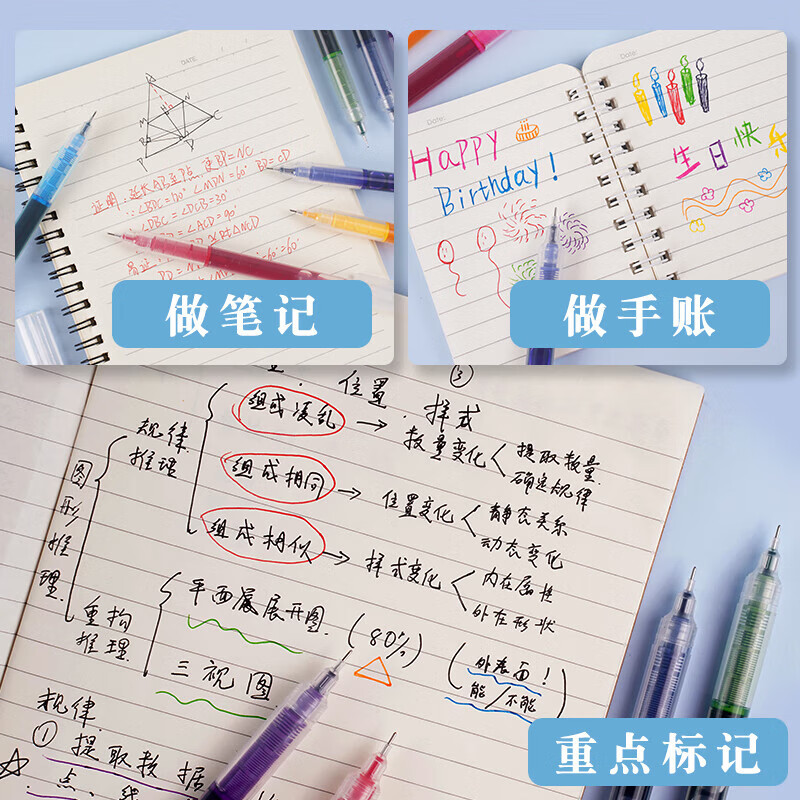 DATE:
证明:延长AB至点
∵∠BDC=120° ∠MDN=60° BD=CD
∠DBC=∠DCB=30°
=∠ACD=90°
做笔记
Date:
Date:
Happy
Birthday!
生日快乐
做手账
位置.样式
③
图形推理
规律推理
组成凌乱
数量变化
提取数量
确定规律
组成相同
位置变化
静态关系
动态变化
组成相似
样式变化
内在属性
外在形状
重构推理
平面展开图
(80%)
三视图
(外表面!
能/不能)
规律
①提取数据
点、线
重点标记